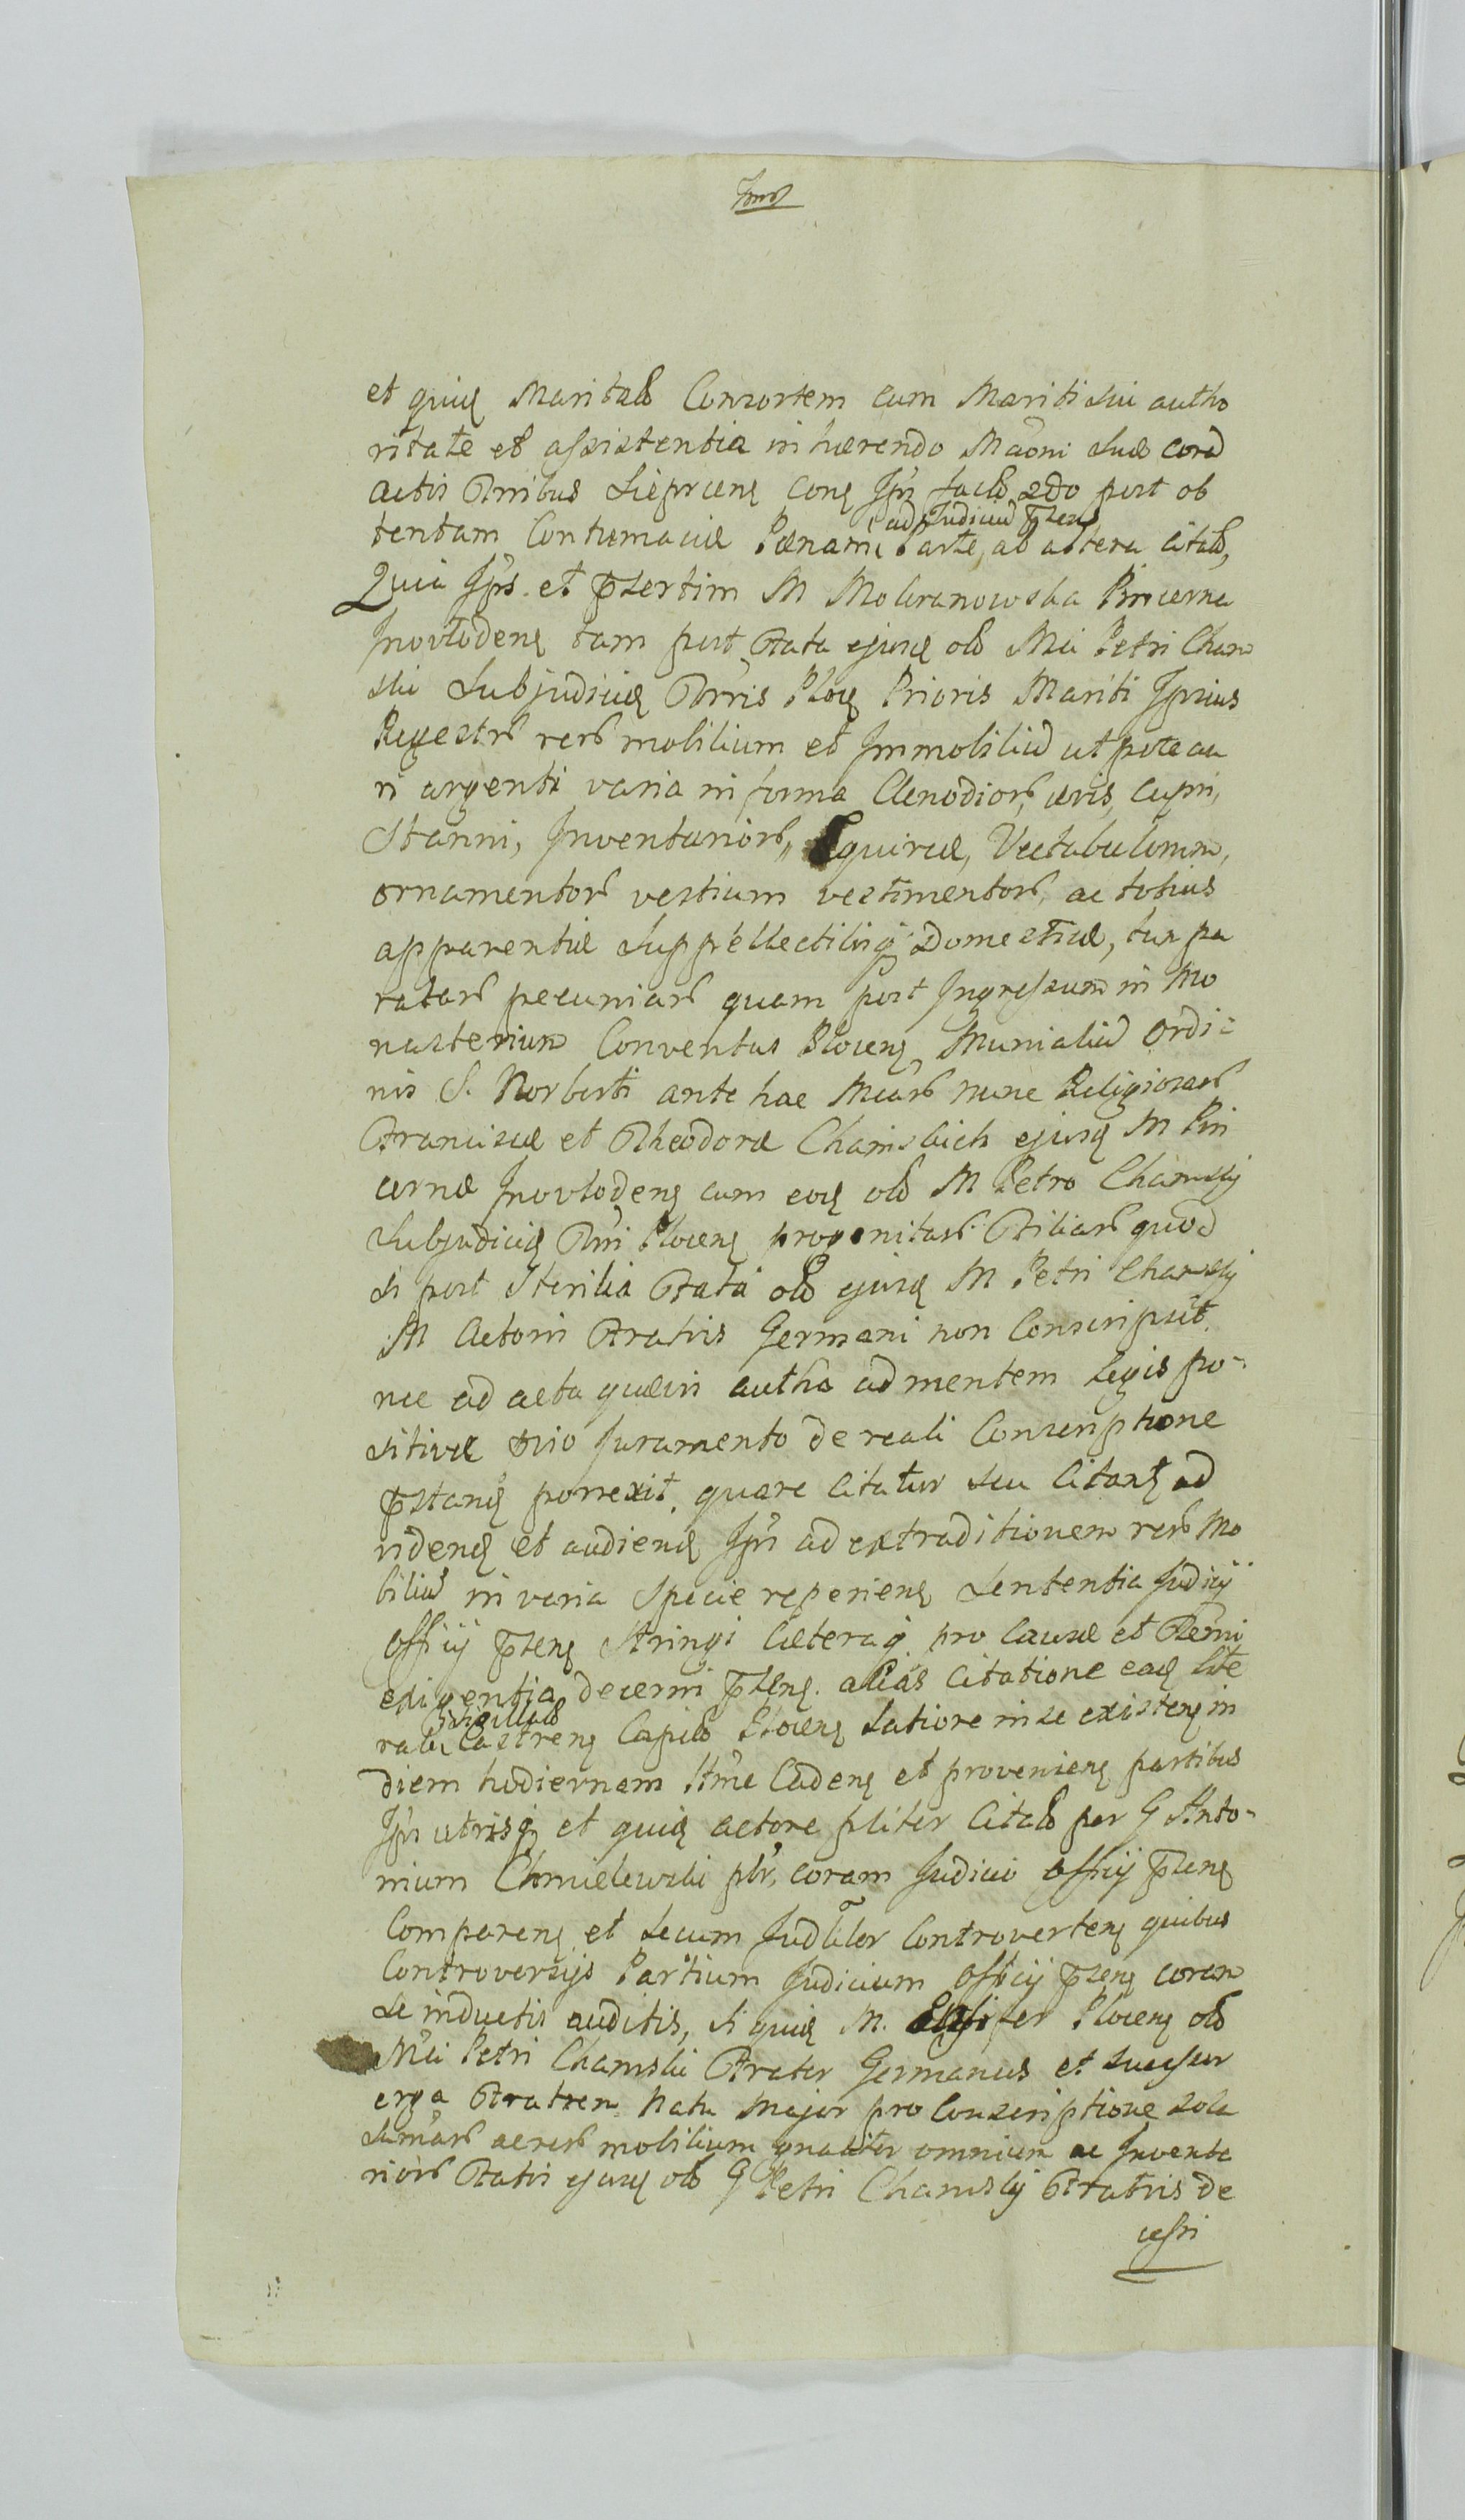 et quidem Maritalem Consortem cum Mariti sui autho
ritate et assistentia inhærendo Maõni suæ corã
actis Trribus Sieprcens Cons Ipsi factæ 2do post ob
ad Judiciũ p̃sens
tentam Contumaciæ Pænam Parte, ab altera Citatã,
Quia Ipsi et p̃sertim M Mokranowska Pincerna
Inovlodens tam post Fata ejusd olim Mci Petri Cham
ski Subjudicis Trris Ploc Prioris Mariti Ipsius
Regestrũ rerũ mobilium et Immobiliũ utpote au
ri argenti varia in forma Clenodiorũ, æris, Cupri,
Stanni, Inventariorũ, Equireæ, Vectabulorum,
ornamentorũ vestium vestimentorũ, ac totius
apparentiæ Suppellectilisq Domesticæ, tum pa
ratarũ pecuniarũ quam post Ingressum in Mo
nasterium Conventus Plocens Munialiũ Ordi=
nis S. Norberti ante hac Mcarũ nunc Religiosarũ
Franciscæ et Theodoræ Chamskich ejusd M Pin
cernæ Inovlodens cum eod olim M Petro Chamskij
Subjudicis Trri Plocens progenitarũ Filiarũ quod
si post Sterilia Fata olim ejusd M Petri Chamskij
M Actoris Fratris Germani non Conscripsit
nec ad acta quævis autha ad mentem Legis po=
sitivæ prio Juramento de reali Conscriptione
p̃stand porrexit. quare Citatur seu Citant ad
vidend et audiend Ipsi ad extraditionem rerũ Mo
biliũ in varia Specie reperiens Sententia Judicij
Officij p̃sens Stringi Cæteraq pro Causæ et Termi
exigentia decerni p̃sens. aliás Citatione ead Lite
Sigillatã
rali Castrens Capitli Plocens Latiore in se existens in
diem hodiernam Ltime Cadens et proveniens partibus
Ipsi utrisq et quid actore pliter Citatã per G Anto=
nium Chmielewski plr, coram Judicio Officij p̃sens
Comparens et Secum Judlilor Controvertens quibus
Controversijs Partium Judicium Officij p̃sens coram
Se inductis auditis, si quid M. Ensifer Plocens olim
Mci Petri Chamski Frater Germanus et Successor
erga Fratrem Natu Major pro Conscriptione sola
Summarũ ac rerũ mobilium qualiter omnium ac Inventa
riorũ Fatis ejusd olim G Petri Chamskij Fratris de
cessi